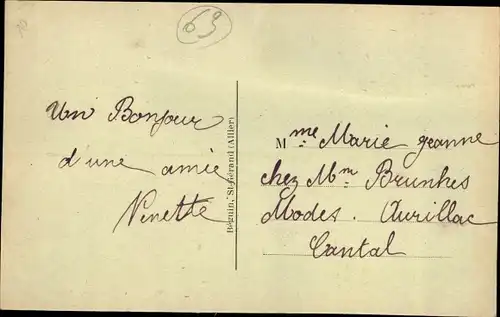 63
Un Bonjour
d'une amie
Ninette
Béguin, St-Gérand (Allier)
Mme Marie jeanne
chez Mm Brunhes
Modes. Aurillac
Cantal